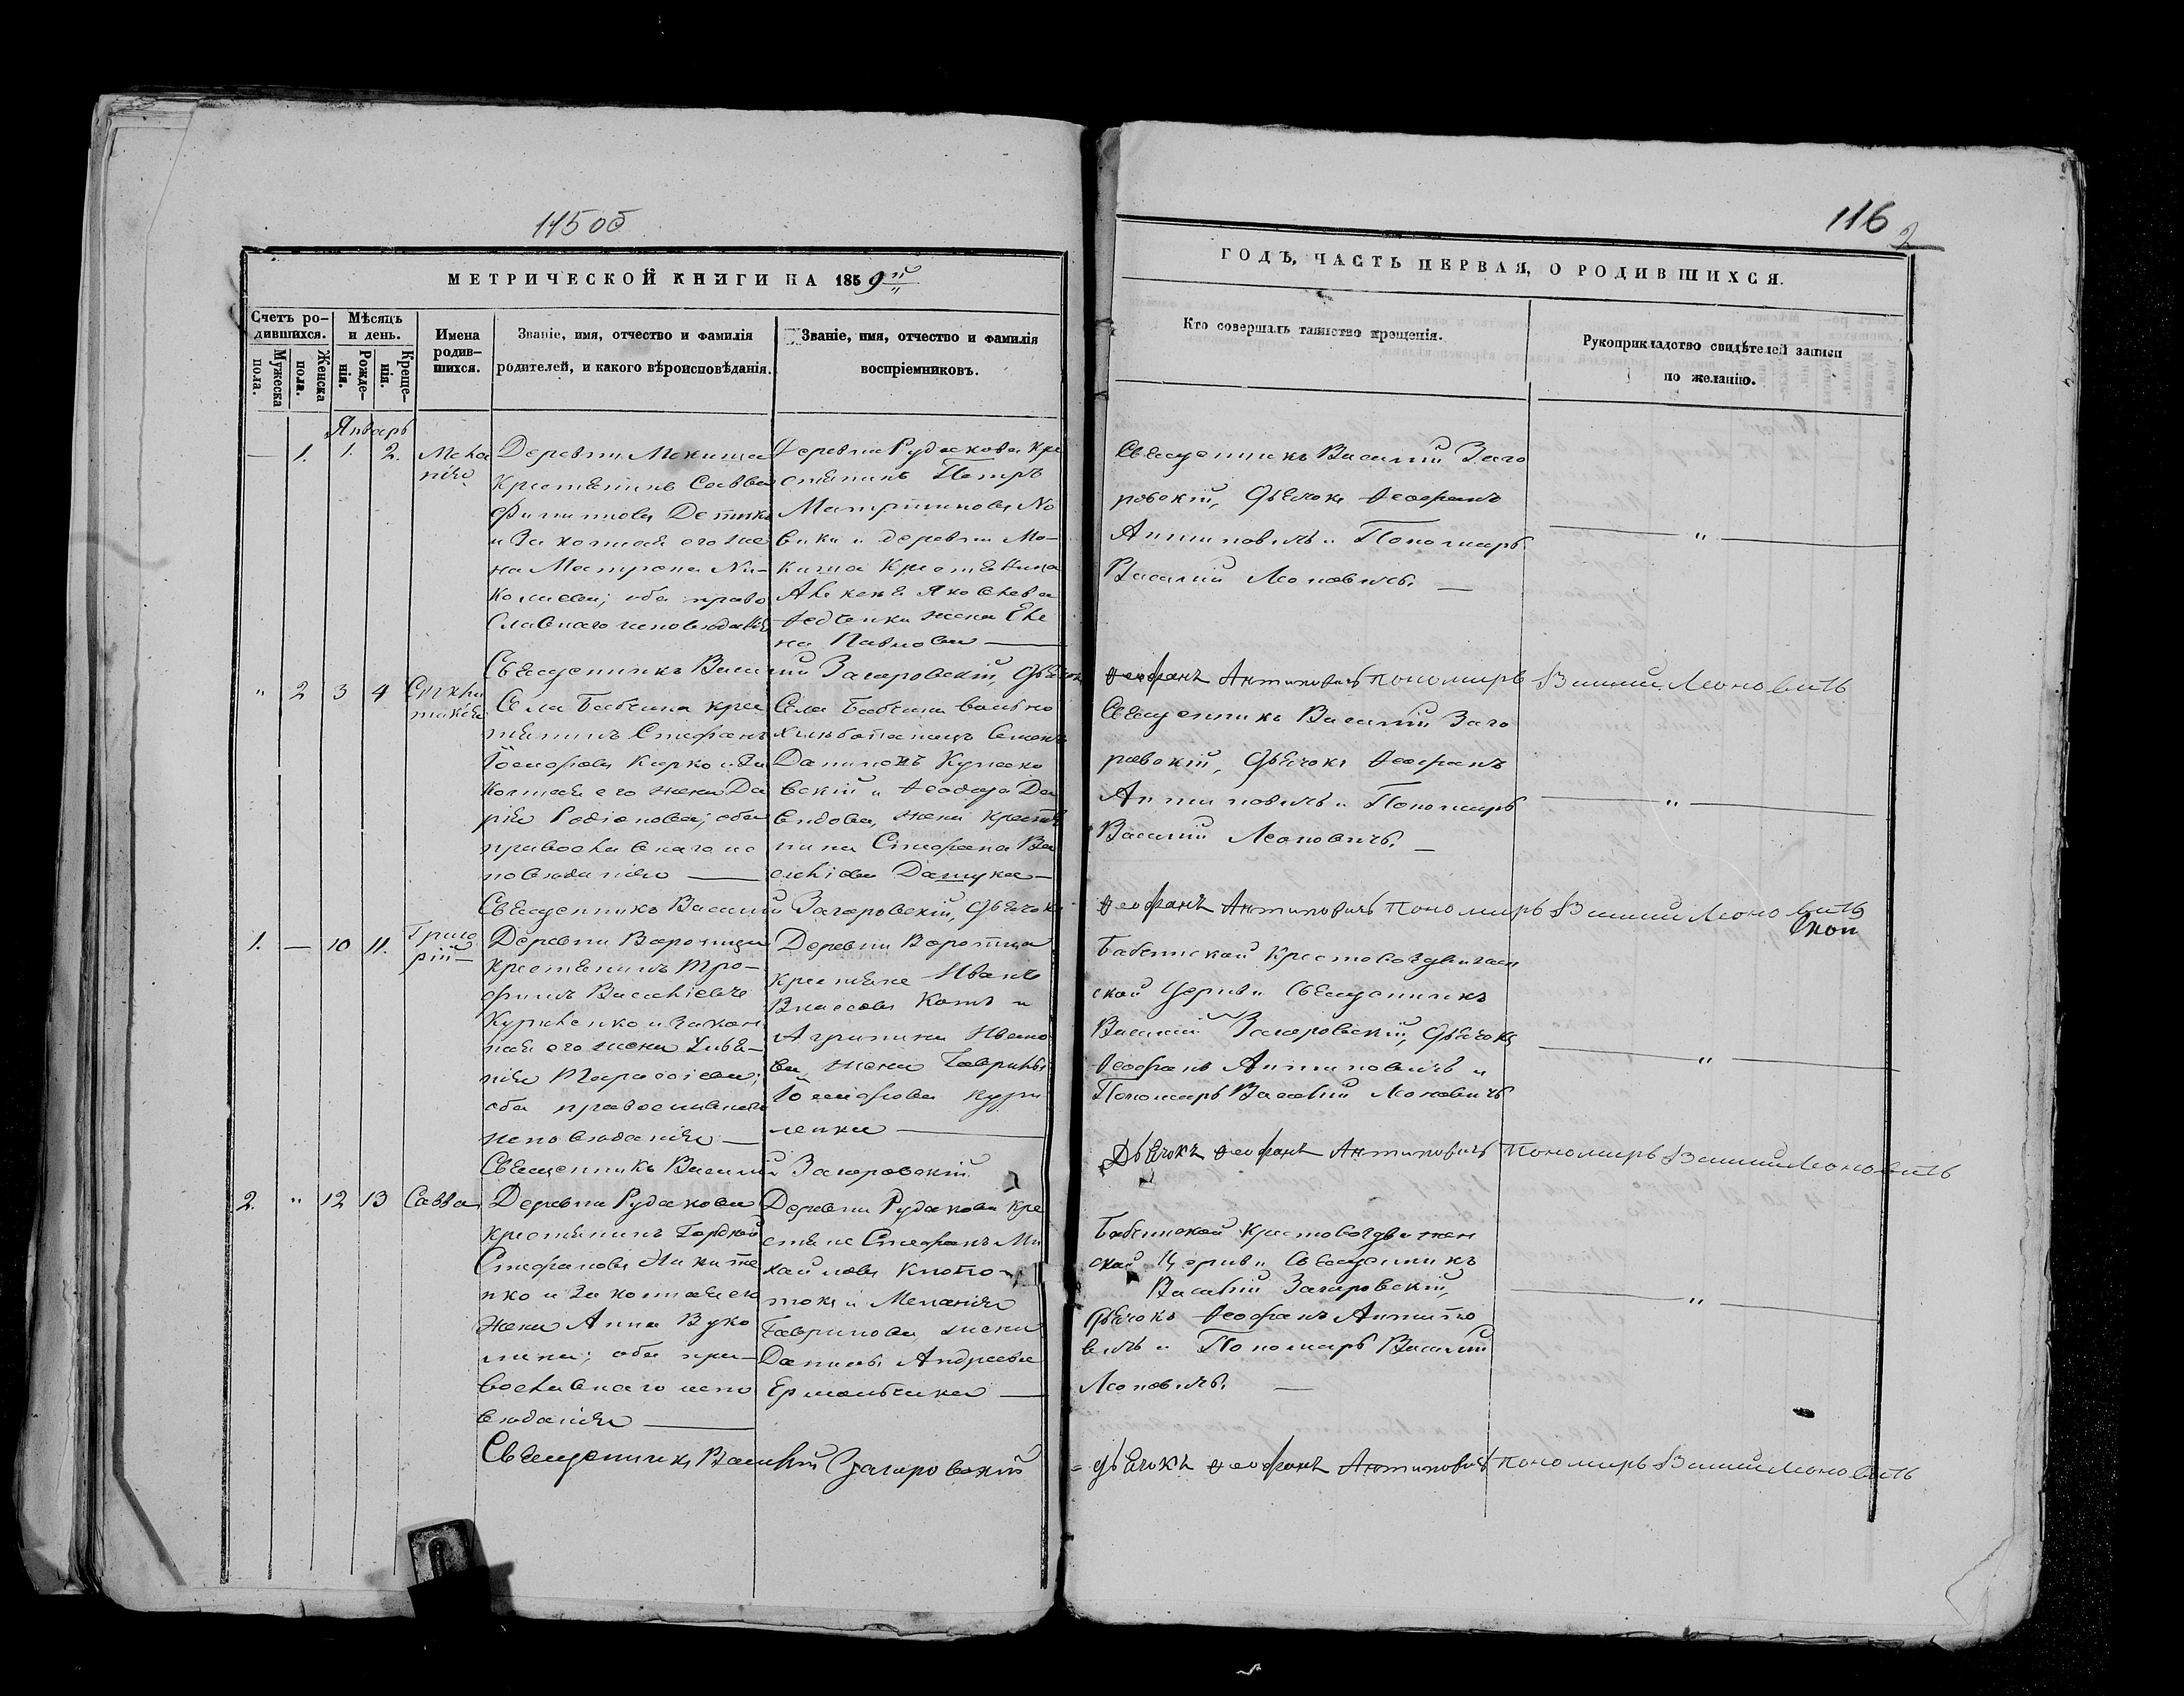 115 об
116
2
МЕТРИЧЕСКОЙ КНИГИ НА 1859й
ГОДЪ, ЧАСТЬ ПЕРВАЯ, О РОДИВШИХСЯ.
Счетъ ро-
дившихся.
Мужеска
пола.
Женска
пола.
Мѣсяцъ
и день.
Рожде-
нія.
Креще-
нія.
Имена
родив-
шихся.
Званіе, имя, отчество и фамилія
родителей, и какого вѣроисповѣданія.
Званіе, имя, отчество и фамилія
воспріемниковъ.
Кто совершалъ таинство крещенія.
Рукоприкладство свидѣтелей записи
по желанію.
Январь
— 1. 1. 2.
Мела
нія
Деревни
Крестьянинъ Савва
и Законная его же
на Матрона Ни-
колаева; оба право
славнаго исповѣданія
Деревни Рудакова кре
стьянинъ Петръ
Мартиновъ Но
викъ и деревни Мо-
Яковлева
жена Еле
на Павлова —
Священникъ Василій Заго
ровскій, Дьячокъ Ѳеофанъ
Антиповичъ и Пономарь
Василій Леоновичъ. —
— „ —
Священникъ Василій Загоровскій, Дьячокъ
Ѳеофанъ Антиповичъ пономарь Василий Леоновичъ
„ 2 3 4
Села Бабчина кре
стьянинъ Стефанъ
Іосифовъ Кирко и За
конная его жена Да
рія Родіонова; оба
православнаго ис
повѣданія —
Села Бабчина вольно
Семенъ
и Ѳеодора Да
видова, жена крестья
нина Стефана Ва
силіева
Священникъ Василій Заго
ровскій, Дьячокъ Ѳеофанъ
Антиповичъ и Пономарь
Василій Леоновичъ. —
— „ —
Священникъ Василій Загоровскій, Дьячокъ
Ѳеофанъ Антиповичъ пономарь Василий Леоновичъ
1. — 10 11.
Григо
рій —
Деревни
крестьянинъ Тро-
фимъ Василіевъ
Куриленко и закон
ная его жена
Тарасіева;
оба православнаго
исповѣданія —
Деревни
крестьяне Иванъ
Власовъ Котъ и
Агрипина Ивано
ва, жена Гавріила
Іосифова Кури
ленка —
Бабчинской Крестовоздвижен
ской Церкви Священникъ
Василій Загоровскій, Дьячокъ
Ѳеофанъ Антиповичъ и
Пономарь Василій Леоновичъ
— „ —
Священникъ Василій Загоровскій.
Дьячокъ Ѳеофанъ Антиповичъ пономарь Василий Леоновичъ
2. „ 12 13
Савва
Деревни Рудакова
крестьянинъ Гордей
Стефановъ Никите
нко и Законная его
жена Анна Вуко
лина; оба пра-
вославнаго испо
вѣданія —
Деревни Рудакова кре
стьяне Стефанъ Ми
хайловъ
и Меланія
Гаврилова, жена
Даніила Андреева
Ермольчика —
Бабчинской Крестовоздвижен
ской Церкви Священникъ
Василій Загоровскій,
Дьячокъ Ѳеофанъ Антипо
вичъ и Пономарь Василій
Леоновичъ. —
— „ —
Священникъ Василій Загоровскій
Дьячокъ Ѳеофанъ Антиповичъ пономарь Василий Леоновичъ